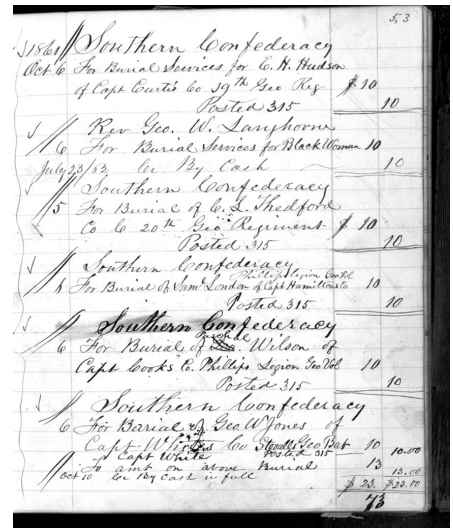 53
1861 Southern Confederacy
Oct 6 For Burial Services for E. H. Hudson
of Capt Curtis Co 19th Geo Reg $10
Posted 315 10
Rev Geo. W. Langhorne
6 For Burial Services for Black Woman 10
July 23/52 Cr By Cash 10
Southern Confederacy
5 For Burial of C. L. Thedford
Co C 20th Geo Regiment $10
Posted 315 10
Southern Confederacy
Phillips Legion Geo Vol
6 For Burial of Saml London of Capt Hamiltons Co 10
Posted 315 10
Southern Confederacy
6 For Burial of Wilson of
Capt Cooks C. Phillips Legion Geo Vol 10
Posted 315 10
Southern Confederacy
6 For Burial of Geo W Jones of
Capt Co Stovalls Geo Bat 10 10.00
Capt White Posted 315
To amt on above Burial 13 13.00
Oct 10 Cr By Cash in full $23. $23.00
73